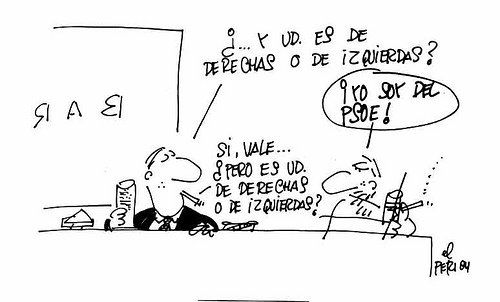 ¿... Y UD. ES DE
DERECHAS O DE IZQUIERDAS?
¡YO SOY DEL
PSOE!
BAR
SI, VALE...
¿PERO ES UD.
DE DERECHAS
O DE IZQUIERDAS?
el
PERI 04